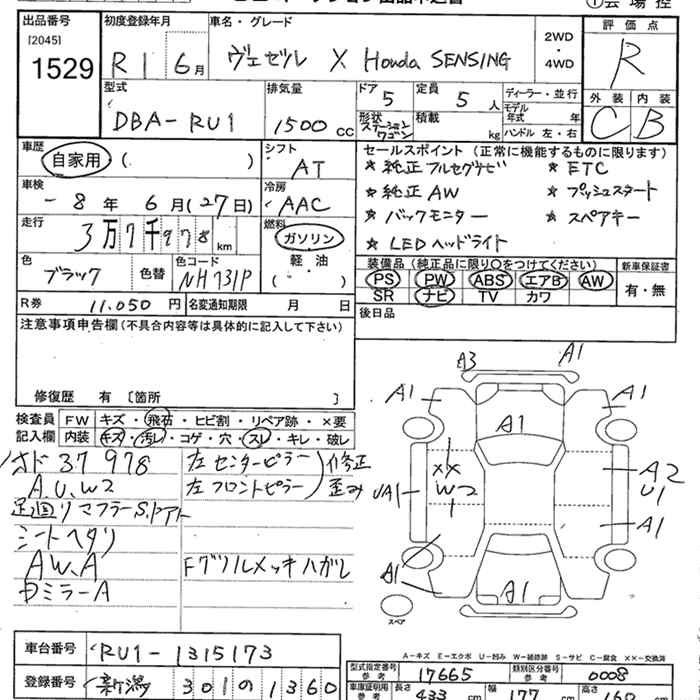 出品番号 初度登録年月 車名・グレード 評価点
[2045] 1529 R1 6月 ヴェゼル X Honda SENSING 2WD・4WD R
型式 排気量 ドア 定員 ディーラー・並行 外装 内装
DBA-RU1 1500 CC 5 5 人 モデル年式 年 C B
形状 ステーションワゴン 積載 kg ハンドル 左・右
車歴 シフト セールスポイント（正常に機能するものに限ります）
自家用 ( ) AT ★純正フルセグナビ ★ETC
車検 冷房 ★純正AW ★プッシュスタート
8年 6月(27日) AAC ★バックモニター ★スペアキー
走行 燃料 ★LEDヘッドライト
3万7千978km ガソリン
色 色替 色コード 軽・油 装備品（純正品に限り○をつけてください） 新車保証書
ブラック NH731P ( ) PS PW ABS エアB AW 有・無
R券 11.050円 名変通知期限 月 日 SR ナビ TV カワ
注意事項申告欄（不具合内容等は具体的に記入して下さい） 後日品
修復歴 有 〔箇所 〕
検査員記入欄 FW キズ・飛石・ヒビ割・リペア跡・×要
内装 キズ・汚レ・コゲ・穴・スレ・キレ・破レ
37978 左センターピラー 修正
A.U.W2 左フロントピラー 歪み
足回リマフラーS.アト
シートヘタリ
AW.A Fグリルメッキハガレ
ミラーA
A3 A1
A1 A1 A1
XX W2 A2 U1
UA1
A1
A1 A1
スペア
A-キズ E-エクボ U-凹み W-補修跡 S-サビ C-腐食 XX-交換済
車台番号 RU1-1315173
型式指定番号 参考 17665 類別区分番号 参考 0008
登録番号 新潟 301の1360
車庫証明用 参考 長さ 433 cm 幅 177 cm 高さ 160 cm